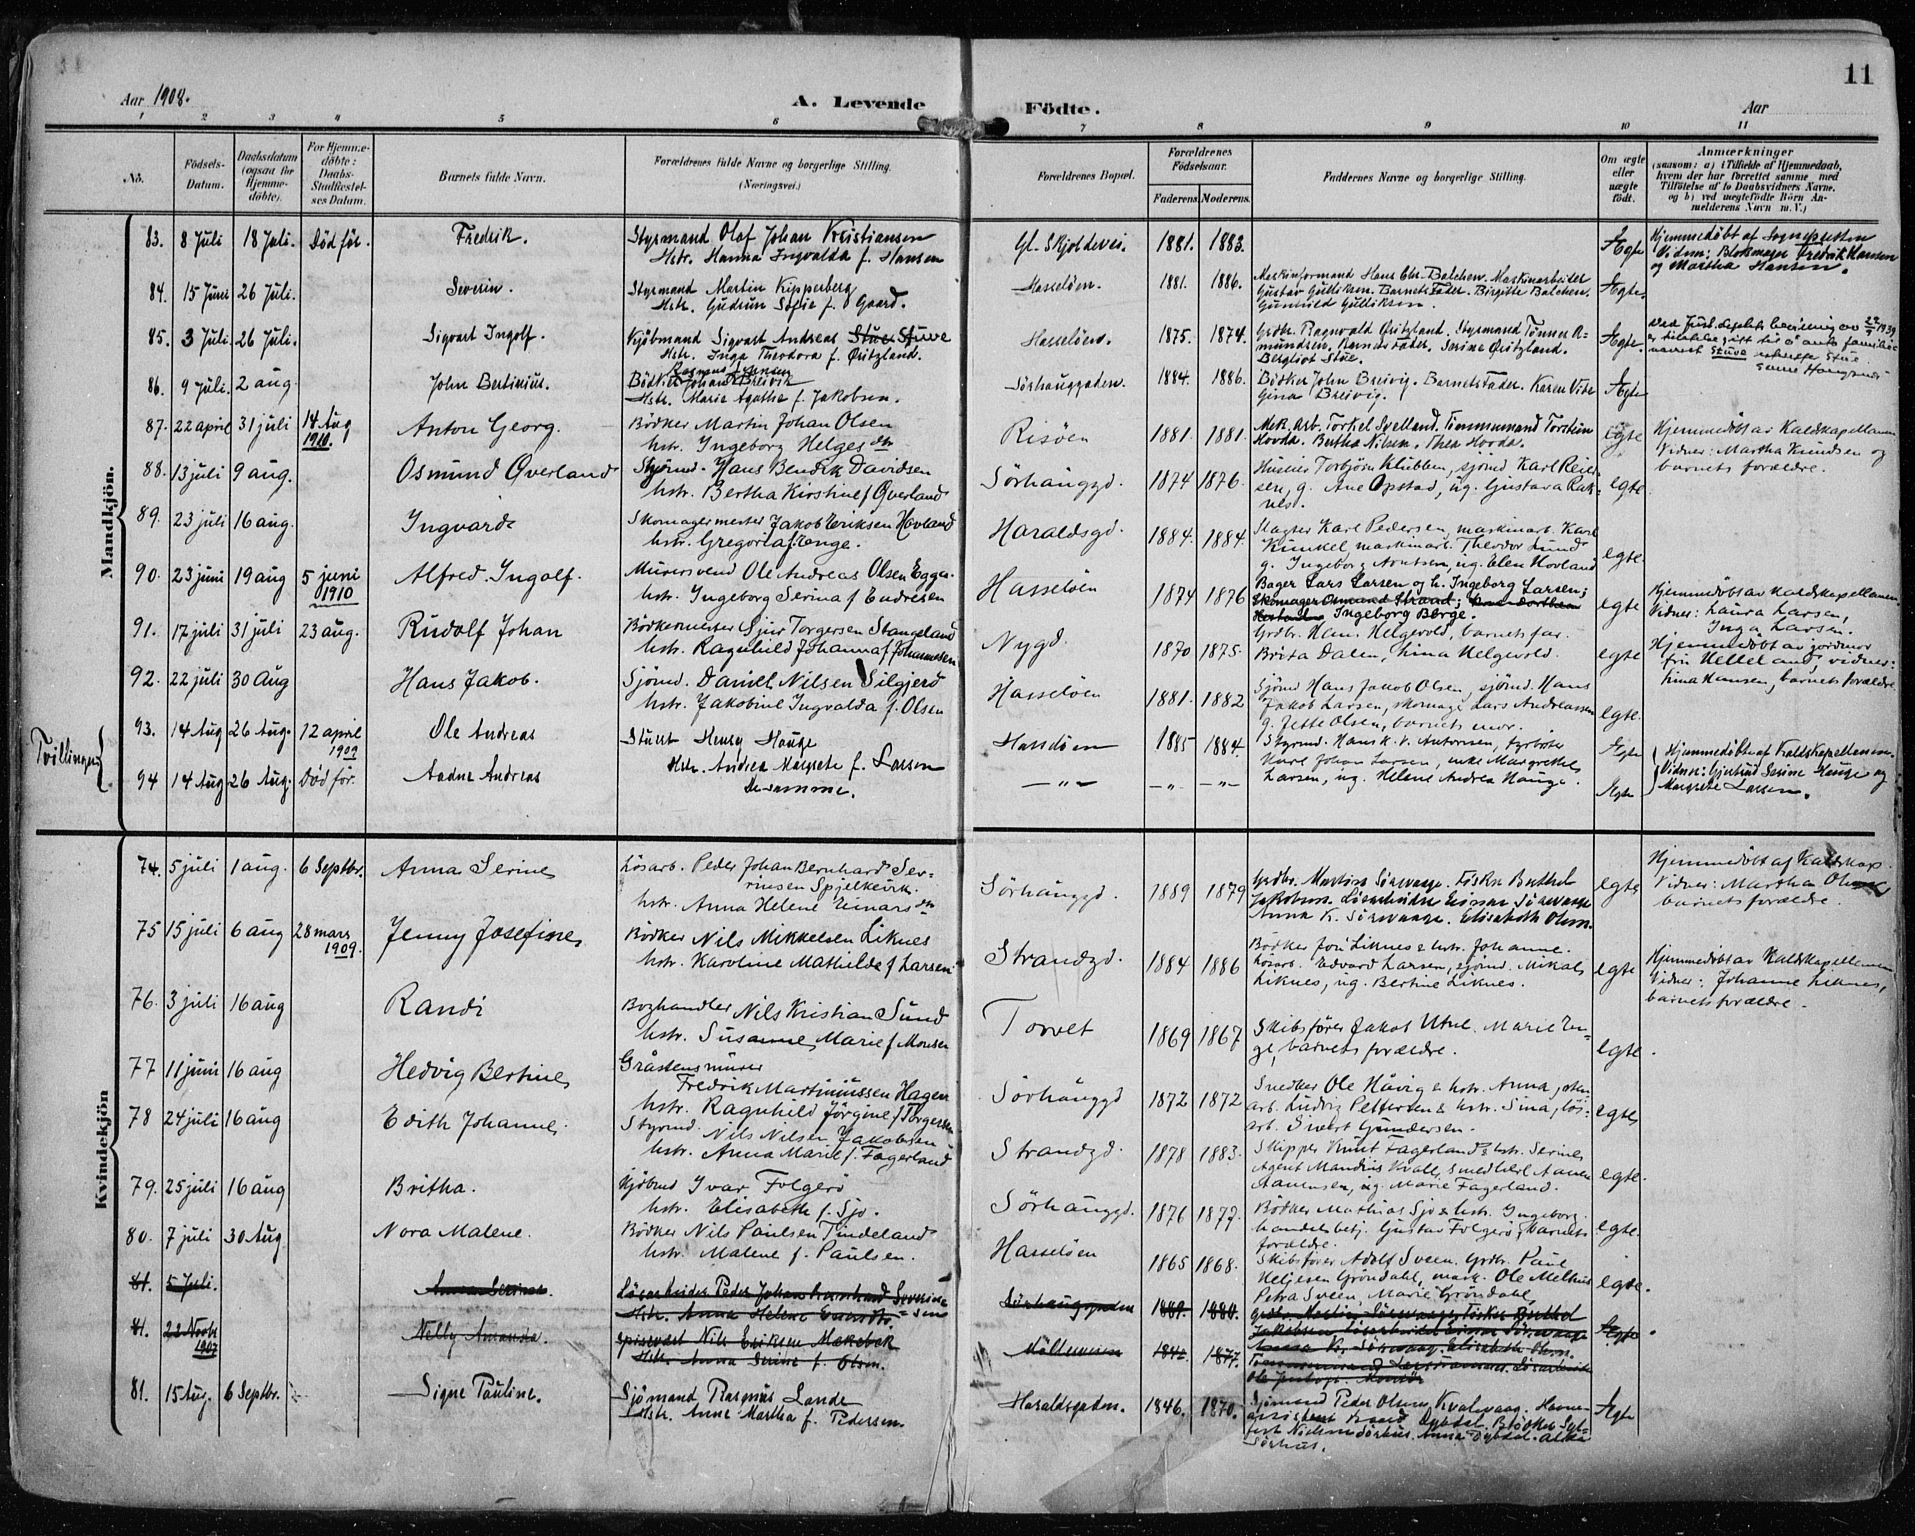 Aar 1908.
A. Levende Födte.
Aar
11
1 2 3 4 5 6 7 8 9 10 11
No.
Födsels-Datum.
Daabsdatum (ogsaa for Hjemmedöbte).
For Hjemmedöbte: Daabs-Stadfæstelses Datum.
Barnets fulde Navn.
Forældrenes fulde Navne og borgerlige Stilling. (Næringsvei.)
Forældrenes Bopæl.
Forældrenes Födselsaar.
Faderens. Moderens.
Faddernes Navne og borgerlige Stilling.
Om ægte eller uægte födt.
Anmærkninger
(saasom: a) i Tilfælde af Hjemmedaab, hvem der har forrettet samme med Tilföielse af to Daabsvidners Navne. og b) ved uegtefödte Börn Anmelderens Navn m. V.)
Mandkjön.
83. 8 Juli 18 Juli. Död för. Fredrik. Styrmand Olaf Johan Kristiansen Gl. Skjoldevei. 1881. 1883. Ægte Hjemmedöbt af Sognepresten
Hstr. Hanna Ingvalda f. Hansen Vidner: Bloksmager Fredrik Hansen
og Martha Hansen.
84. 15 Juni 26 Juli. Severin. Styrmand Martin Kipperberg Hasseløen. 1881. 1886. Maskinformand Hans Chr. Balchen. Maskinarbeider Ægte.
Hstr. Gudrun Sofie f. Gaard. Gustav Gulliksen. Barnets Fader. Birgitte Balchen.
Gunhild Gulliksen.
85. 3 Juli. 26 Juli. Sigvart Ingolf. Kjöbmand Sigvart Andreas Stue Stuve Hasseløen. 1875. 1874. Grdbr. Ragnvald Øritzland. Styrmand Tønnes A- Ægte.
Hstr. Inga Theodora f. Øritzland. mundsen, Barnets Fader. Serine Øritzland.
Bergliot Stue.
86. 9 Juli. 2 aug. John Bertinius. Rasmus Jensen
Bödker Johan Breivik Sörhauggaden. 1884. 1886. Bödker John Breivig. Barnets Fader. Karen Vibe Ægte
Hstr. Marie Agathe f. Jakobsen. Gina Breivig.
87. 22 april 31 juli 14 Aug 1910. Anton Georg. Bödker Martin Johan Olsen Risöen 1881. 1881. Mek. arb. Torkel Svelland. Tömmermand Torstein egte Hjemmedöbt av Kaldskapellanen
hstr. Ingeborg Helgesdtr Hovda. Bertha Nilsen. Thea Hovda. Vidner: Martha Knudsen og
barnets forældre.
88. 13 juli 9 aug. Osmund Øverland Sjömd. Hans Bendik Davidsen Sörhauggd. 1874 1876. Huseier Torbjörn Klubben, sjömd Karl Reier- egte.
hstr. Bertha Kirstine f Øverland sen, g. Ane Opstad, ug. Gustava Rak-
nes.
89. 23 juli 16 aug. Ingvard Skomagermester Jakob Eriksen Hovland Haraldsgd. 1884. 1884. Slagter Karl Pedersen, maskinarb. Karl
hstr. Gregoria f. Enge. Kunkel maskinarb. Theodor Lund egte.
g. Ingeborg Knutsen, ug. Elen Hovland
90. 23 juni 19 aug 5 juni 1910 Alfred Ingolf. Murersvend Ole Andreas Olsen Egge. Hasseløen 1874 1876 Bager Lars Larsen og h. Ingeborg Larsen; egte Hjemmedöbt av kaldskapellanen.
hstr. Ingeborg Serina f Endresen Skomager Osmund Strand; Ingeborg Berge. Vidner: Laura Larsen,
Inga Larsen.
91. 17 juli 31 juli 23 aug. Rudolf Johan Bödkermester Sjur Torgersen Stangeland Nygd. 1870 1875. Grdbr. Hem. Helgevold, barnets far. egte Hjemmedöbt av jordmor
hstr. Ragnhild Johanna f Johannesen Brita Dalen, Lina Helgevold. fru Helleland, vidner:
Lina Hansen, barnets forældre.
92. 22 juli 30 Aug Hans Jakob. Sjömd. Daniel Nilsen Silgjerd Hasseløen 1881. 1882 Sjömd Hans Jakob Olsen, sjömd. Hans egte.
hstr. Jakobine Ingvalda f. Olsen Jakob Larsen, skomager Lars Andreassen
g. Jette Olsen, barnets mor.
Tvillinger
93. 14 Aug 26 Aug. 12 april 1909 Ole Andreas Stuert Henry Hauge 1885 1884. Styrmd. Hans K. V. Antonsen, Fyrböter Ægte Hjemmedöbt af Kaldskapellanen.
Hstr. Andrea Margrete f. Larsen Karl Johan Larsen, enke Margrethe Vidner: Gjertrud Serine Hauge og
94 14 Aug 26 Aug. Död för. Aadne Andreas De samme. —"— —"— —"— Larsen, ug. Helene Andrea Hauge. Ægte Margrete Larsen.
Kvindekjön
74. 5 juli 1 aug. 6 Septbr. Anna Serine Lösarb. Peder Johan Bernhard Seve- Sörhauggd. 1889 1879 Grdbr. Martin Sörevaage. Fisker Berthel egte Hjemmedöbt af Kaldskap.
rinsen Spjelkevik. Jakobsen. Lösarbeider Einar Sörevaage Vidner: Martha Olsen
hstr. Anna Helene Einarsdtr Anna K. Sörevaage. Elisabeth Olsen. barnets forældre.
75 15 juli 6 aug 28 mars 1909. Jenny Josefine Bödker Nils Mikkelsen Liknes Strandgd. 1884 1886 Bödker Joh. Liknes & hstr. Johanne. egte Hjemmedöbt av Kaldskapellanen
hstr. Karoline Mathilde f Larsen. Lösarb. Edvard Larsen, sjömd. Mikal Vidner: Johanne Liknes,
Liknes, ug. Bertine Liknes. barnets forældre.
76. 3 juli 16 aug Randi Boghandler Nils Kristian Sund Torvet 1869 1867 Skibsförer Jakob Utne. Marie En- egte.
hstr. Susanne Marie f Monsen ge, barnets forældre.
77 11 juni 16 aug Hedvig Bertine Gråstensmurer Sörhauggd 1872 1872 Snedker Ole Håvig & hstr. Anna, sten- egte
Fredrik Martiniussen Hagen arb. Ludvig Pettersen & hstr. Sina, lös-
hstr. Ragnhild Jörgine f Torgersen arb. Sivert Gundersen.
78 24 juli 16 aug Edith Johanne Styrmd. Nils Nilsen Jakobsen Strandgd. 1878 1883. Skipper Knut Fagerland & hstr. Serine egte.
hstr. Anna Marie f. Fagerland Agent Mandius Kvalle, smedlærl. Aamun
Aamundsen, ug. Marie Fagerland.
79. 25 juli 16 aug Britha. Kjöbmd Ivar Folgerö Sörhauggd. 1876 1877. Bödker Mathias Sjo & hstr. Ingeborg egte.
hstr. Elisabeth f. Sjo. handelsbetj. Gustav Folgerö, barnets
forældre.
80. 7 juli 30 Aug Nora Malene. Bödker Nils Paulsen Tindeland Hasseløen 1865 1868. Skibsförer Adolf Sveen, Grdbr. Paul egte.
hstr. Malene f. Paulsen. Heljesen Gröndahl, mask. Ole Melhus
Petra Sveen, Marie Gröndahl,
81. 5 Juli. Anna Serine. Lösarbeider Peder Johan Bernhard Severin-sen Sörhauggaden 1889. 1880. Grdbr. Martin Sörevaage, Fisker Berthel
Hstr. Anna Helene Einarsdtr. Jakobsen Lösarbeider Einar Sörevaage
81. 22 Novbr 1907 Nelly Amanda. Spisevært Nils Eriksen Møkebek 1877. Anna K. Sörevaag, Elisabeth Olsen. Ægte
Hstr. Anna Serine f. Olsen.
81. 15 Aug. 6 Septbr. Signe Pauline. Sjömand Rasmus Lande Haraldsgaden. 1846. 1870. Sjömand Peder Olsen Kvalevaag. Havne- Ægte
Hstr. Anne Martha f. Pedersen. assistent Dybdal. Bödker Syl-
fest Nielsen Sörhus. Anna Dybdal.
Sörhus.